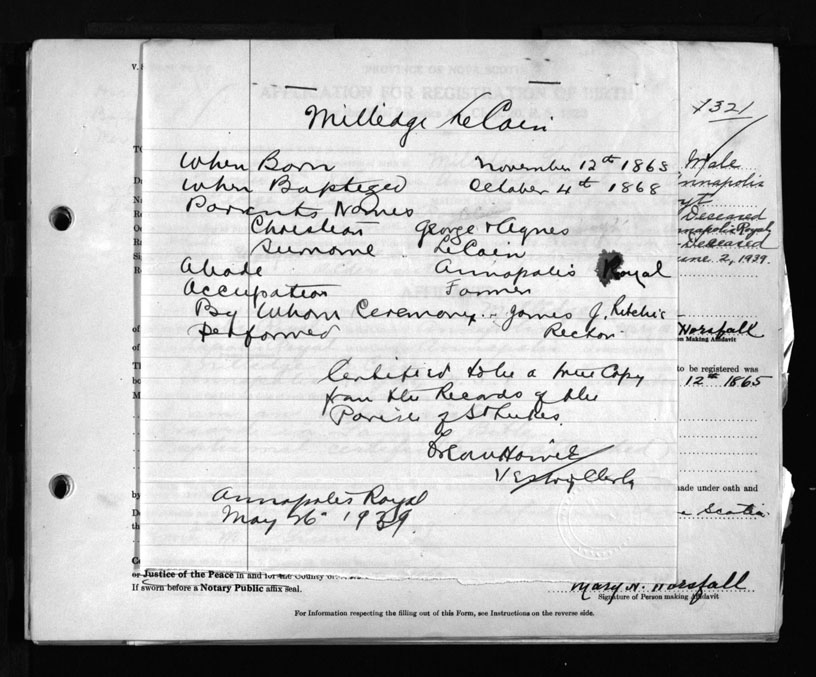 V.
PROVINCE OF NOVA SCOTIA
APPLICATION FOR REGISTRATION OF BIRTH
1321
Milledge LeCain
When Born November 12th 1865
When Baptized October 4th 1868
Parents Names
Christian George + Agnes
Surname LeCain
Abode Annapolis Royal
Accupation Farmer
By Whom Ceremony James J. Ritchie
performed Rector
Certified to be a true Copy
from the Records of the
Parish of St Lukes.
Vestry Clerk
Annapolis Royal
May 26 1939.
Male
nnapolis
Deseased
nnapolis Royal
Deseased
une 2, 1939.
Horsfall
on Making Affidavit
to be registered was
12th 1865
made under oath and
a Scotia
or Justice of the Peace in and for the County
If sworn before a Notary Public affix seal.
Mary H. Horsfall
Signature of Person making Affidavit
For Information respecting the filling out of this Form, see Instructions on the reverse side.